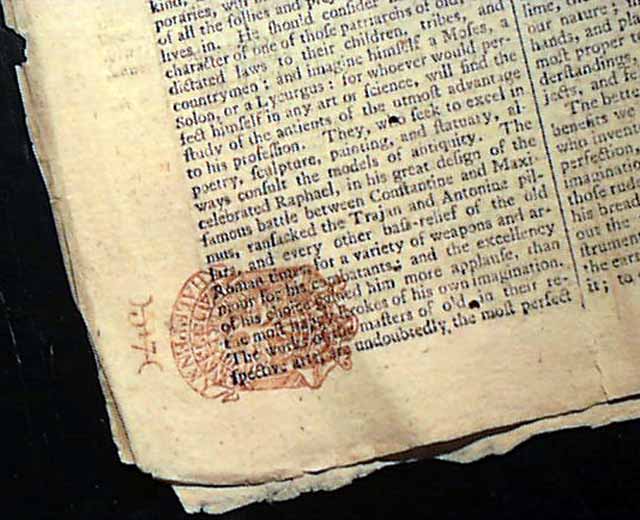 kind,
poraries, will
of all the follies and
lives in. He should consider
character of one of those patriarchs of old, who
dictated laws to their children, tribes, and
countrymen; and imagine himself a Moses, a
Solon, or a Lycurgus: for whoever would per-
fect himself in any art or ſcience, will find the
ſtudy of the antients of the utmoſt advantage
to his profeſſion. They, who ſeek to excel in
poetry, ſculpture, painting, and ſtatuary, al-
ways conſult the models of antiquity. The
celebrated Raphael, in his great deſign of the
famous battle between Conſtantine and Maxi-
nus, ranſacked the Trajan and Antonine pil-
lars, and every other baſs-relief of the old
Roman times for a variety of weapons and ar-
mour for his combatants; and the excellency
of his choice gained him more applauſe, than
the moſt ſtrokes of his own imagination.
The works of maſters of old, in their re-
ſpective arts, are undoubtedly, the moſt perfect
lime,
our nature;
hands, and
moſt proper
derſtandings,
jects, and
The better
benefits we
who inven
perfection,
imagination
thoſe rud
his breaſt
out the
ſtrument
the eart
it; to